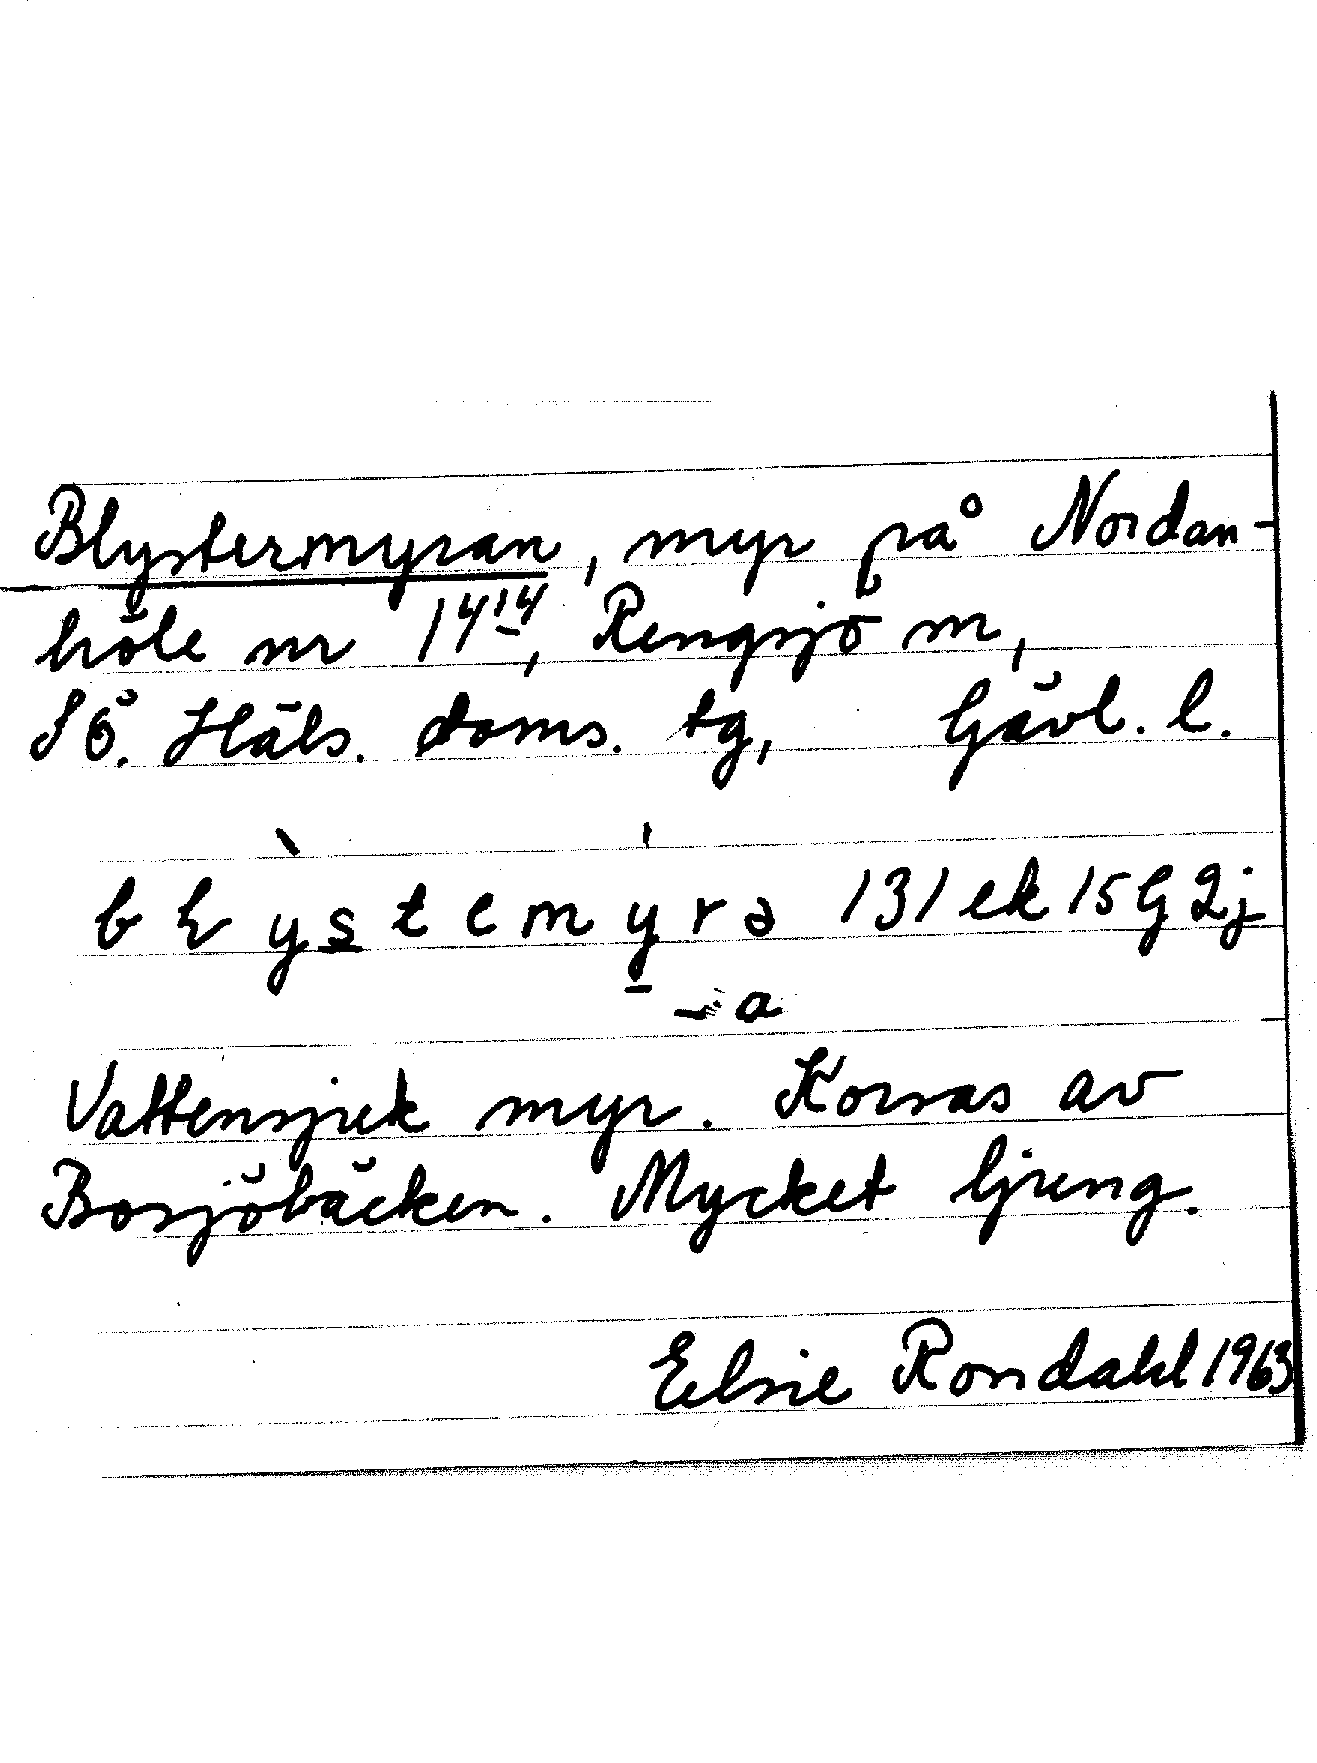 Blystermyran, myr på Nordan-
höle nr 14¹⁴, Rengsjö sn,
SÖ. Häls. doms. tg, Gävl. l.
b l y s t e m y r ə 131 ek 15 G 2j
- a
Vattensjuk myr. Korsas av
Bosjöbäcken. Mycket ljung.
Elsie Rondahl 1963